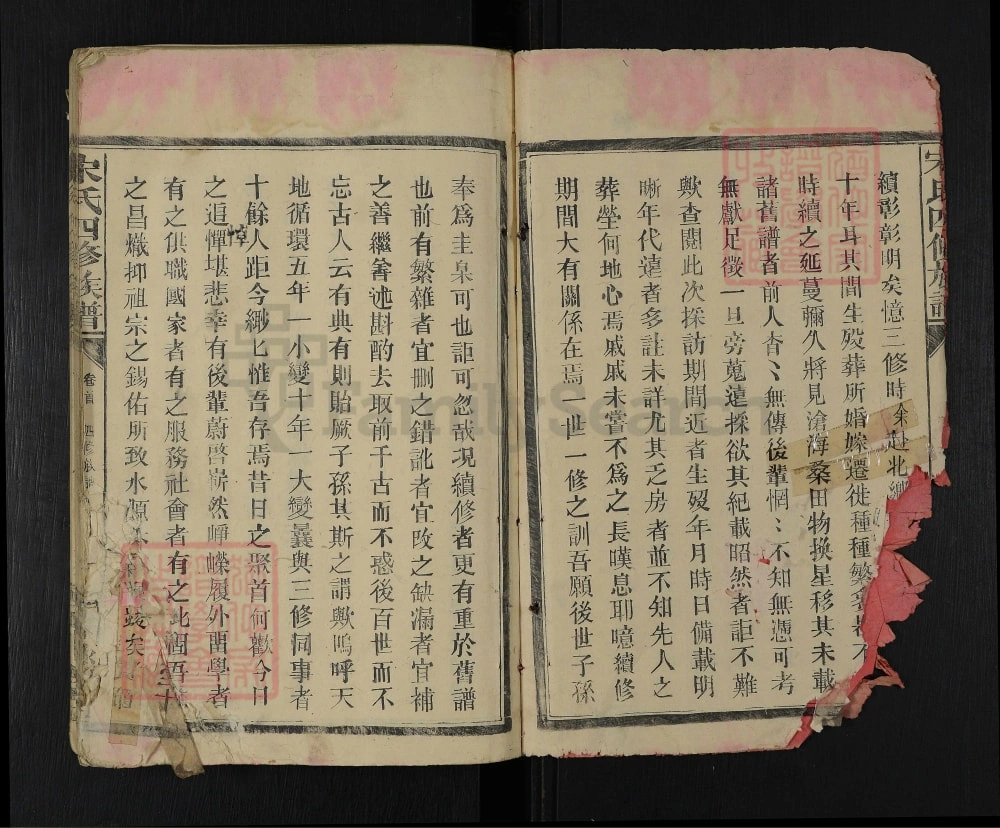 續彰彰明矣憶三修時余赴北鄉
十年耳其間生殁葬所婚嫁遷徙種種繁
時續之延蔓彌久將見滄海桑田物換星移其未載
諸舊譜者前人杳〻無傳後輩惘〻不知無憑可考
無獻足徵一旦旁蒐遠採欲其紀載昭然者詎不難
歟查閱此次採訪期間近者生歿年月時日備載明
晰年代遠者多註未詳尤其乏房者並不知先人之
葬塋何地心焉戚戚未嘗不爲之長嘆息耶噫續修
期間大有關係在焉一世一修之訓吾願後世子孫
奉爲圭臬可也詎可忽哉况續修者更有重於舊譜
也前有繁雜者宜删之錯訛者宜改之缺漏者宜補
之善繼善述斟酌去取前千古而不惑後百世而不
忘古人云有典有則貽厥子孫其斯之謂歟嗚呼天
地循環五年一小變十年一大變曩與三修同事者
十餘人距今緲匕惟吾存焉昔日之聚首何歡今日
之追憚堪悲幸有後輩蔚啓嶄然崢嶸履外留學者
悼
有之供職國家者有之服務社會者有之此固吾
之昌熾抑祖宗之錫佑所致水源
宋氏四修族譜
卷首
宋氏四修族譜
FamilySearch